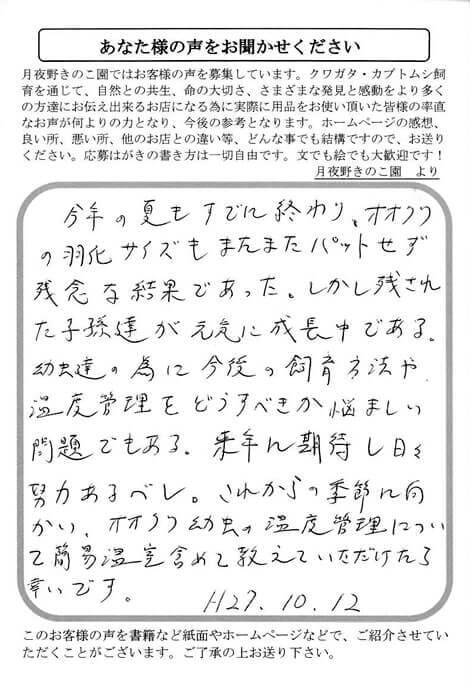 あなた様の声をお聞かせください
月夜野きのこ園ではお客様の声を募集しています。クワガタ・カブトムシ飼
育を通じて、自然との共生、命の大切さ、さまざまな発見と感動をより多く
の方達にお伝え出来るお店になる為に実際に用品をお使い頂いた皆様の率直
なお声が何よりの力となり、今後の参考となります。ホームページの感想、
良い所、悪い所、他のお店との違い等、どんな事でも結構ですので、お送り
ください。応募はがきの書き方は一切自由です。文でも絵でも大歓迎です！
月夜野きのこ園　より
今年の夏もすでに終わり、オオクワ
の羽化サイズもまたまたパットせず
残念な結果であった。しかし残され
た子孫達が元気に成長中である。
幼虫達の為に今後の飼育方法や
温度管理をどうすべきか悩ましい
問題でもある。来年に期待し日々
努力あるべし。これからの季節に向
かい、オオクワ幼虫の温度管理につい
て簡易温室含めて教えていただけたら
幸いです。
H27.10.12
このお客様の声を書籍など紙面やホームページなどで、ご紹介させてい
ただくことがございます。ご了承の上お送り下さい。